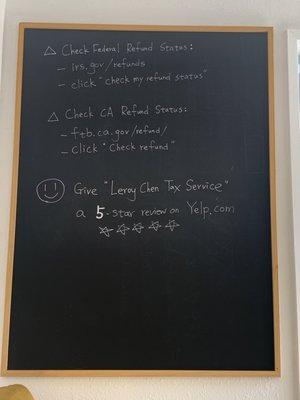 △ Check Federal Refund Status:
- irs.gov/refunds
- click "check my refund status"
△ Check CA Refund Status:
- ftb.ca.gov/refund/
- click "Check refund"
Give "Leroy Chen Tax Service"
a 5-star review on Yelp.com
☆☆☆☆☆